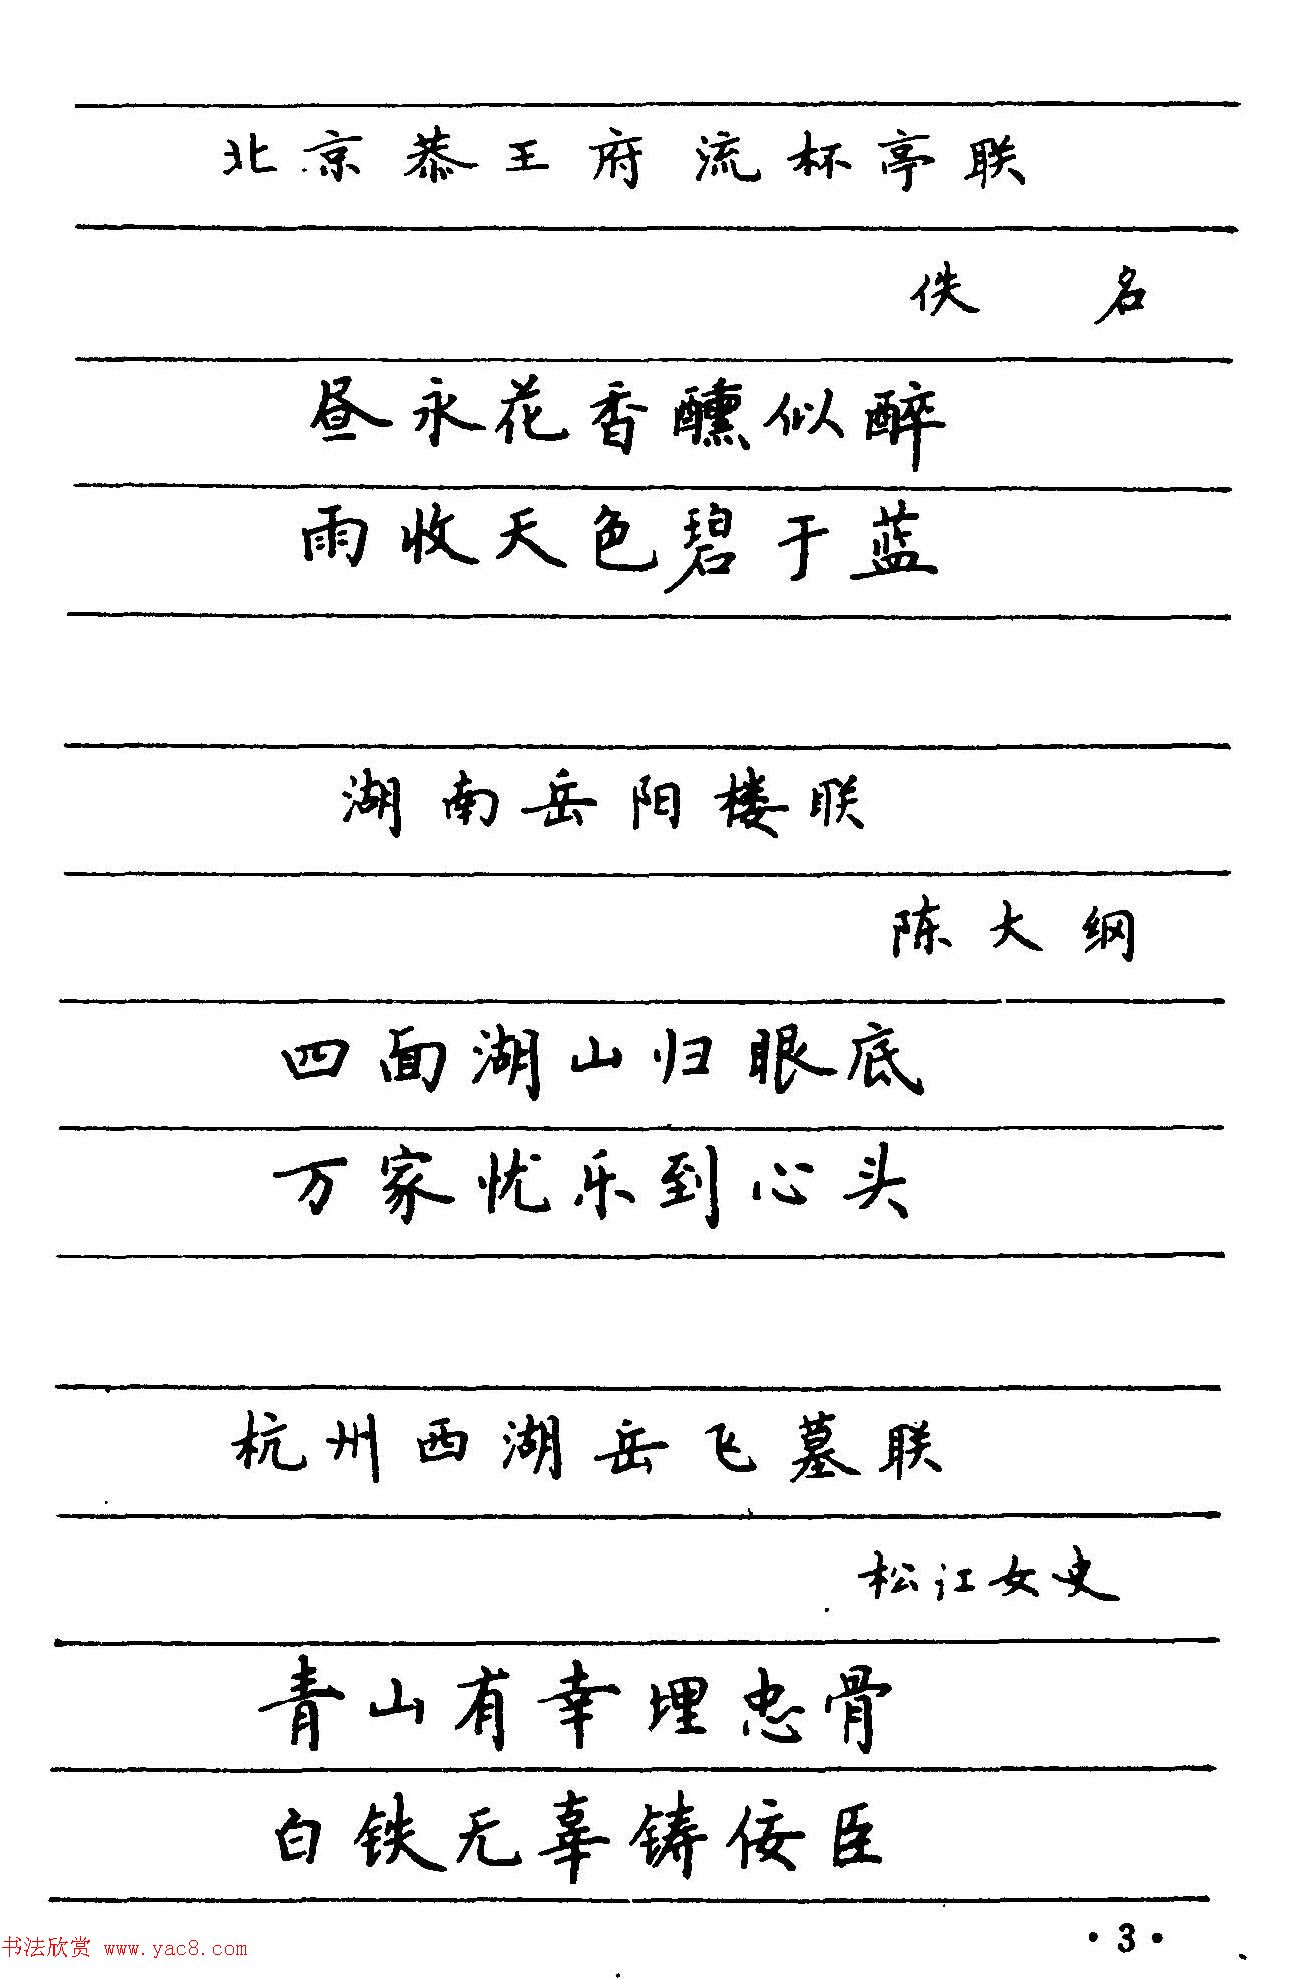 北京恭王府流杯亭联
佚名
昼永花香醺似醉
雨收天色碧于蓝
湖南岳阳楼联
陈大纲
四面湖山归眼底
万家忧乐到心头
杭州西湖岳飞墓联
松江女史
青山有幸埋忠骨
白铁无辜铸佞臣
·3·
书法欣赏 www.yac8.com